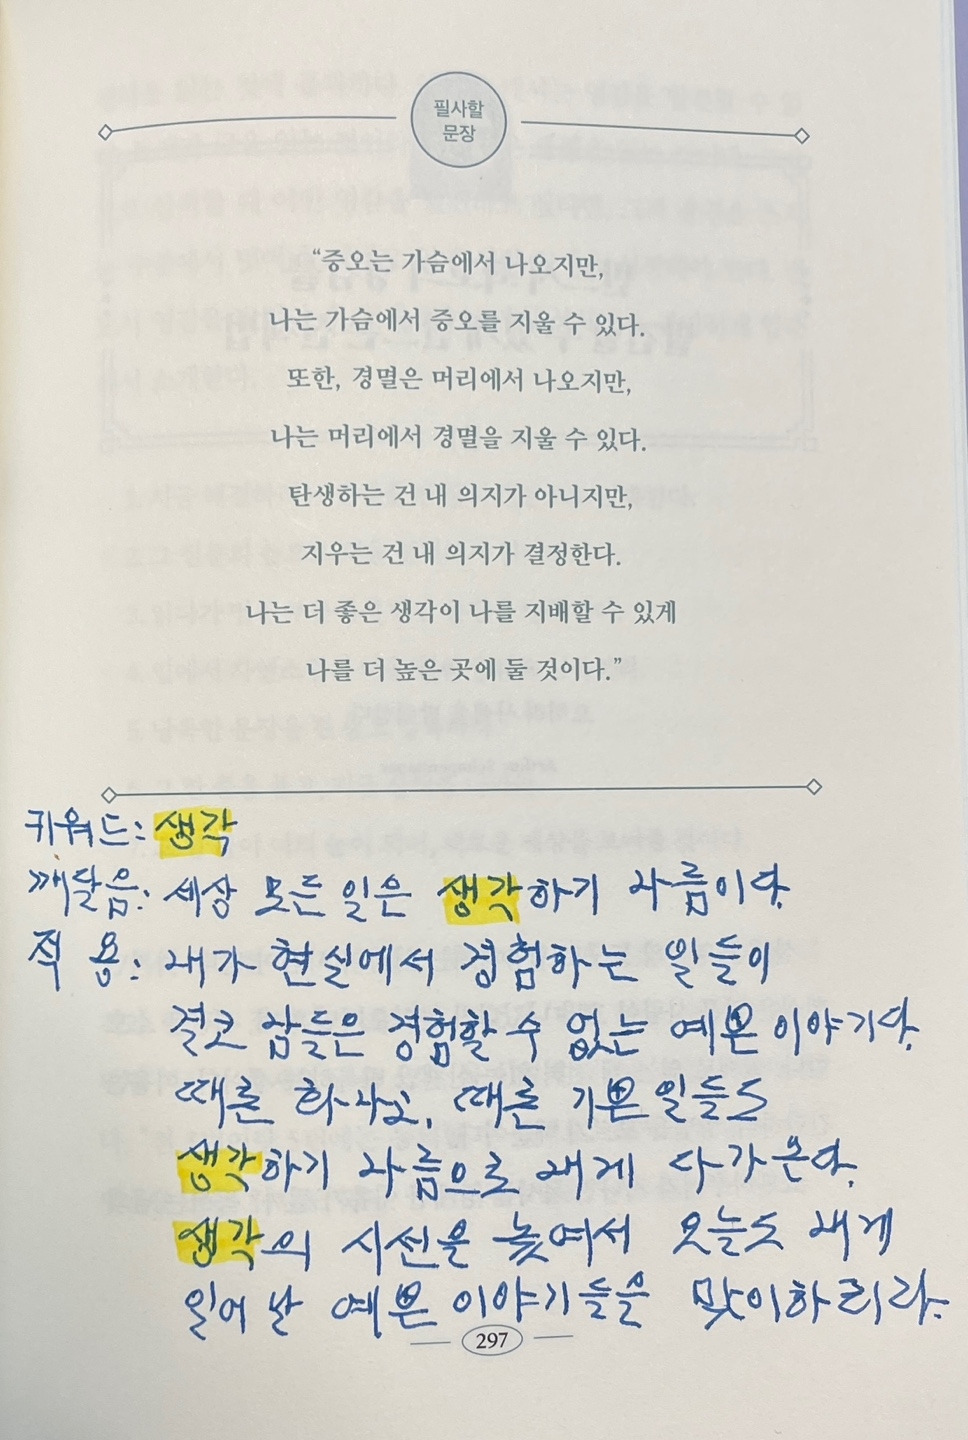 필사할
문장
“증오는 가슴에서 나오지만,
나는 가슴에서 증오를 지울 수 있다.
또한, 경멸은 머리에서 나오지만,
나는 머리에서 경멸을 지울 수 있다.
탄생하는 건 내 의지가 아니지만,
지우는 건 내 의지가 결정한다.
나는 더 좋은 생각이 나를 지배할 수 있게
나를 더 높은 곳에 둘 것이다.”
키워드: 생각
깨달음: 세상 모든 일은 생각하기 나름이다.
적 용: 내가 현실에서 경험하는 일들이
결코 남들은 경험할 수 없는 예쁜 이야기다.
때론 화나고, 때론 기쁜 일들도
생각하기 나름으로 내게 다가온다.
생각의 시선을 높여서 오늘도 내게
일어난 예쁜 이야기들을 맞이하리라.
297